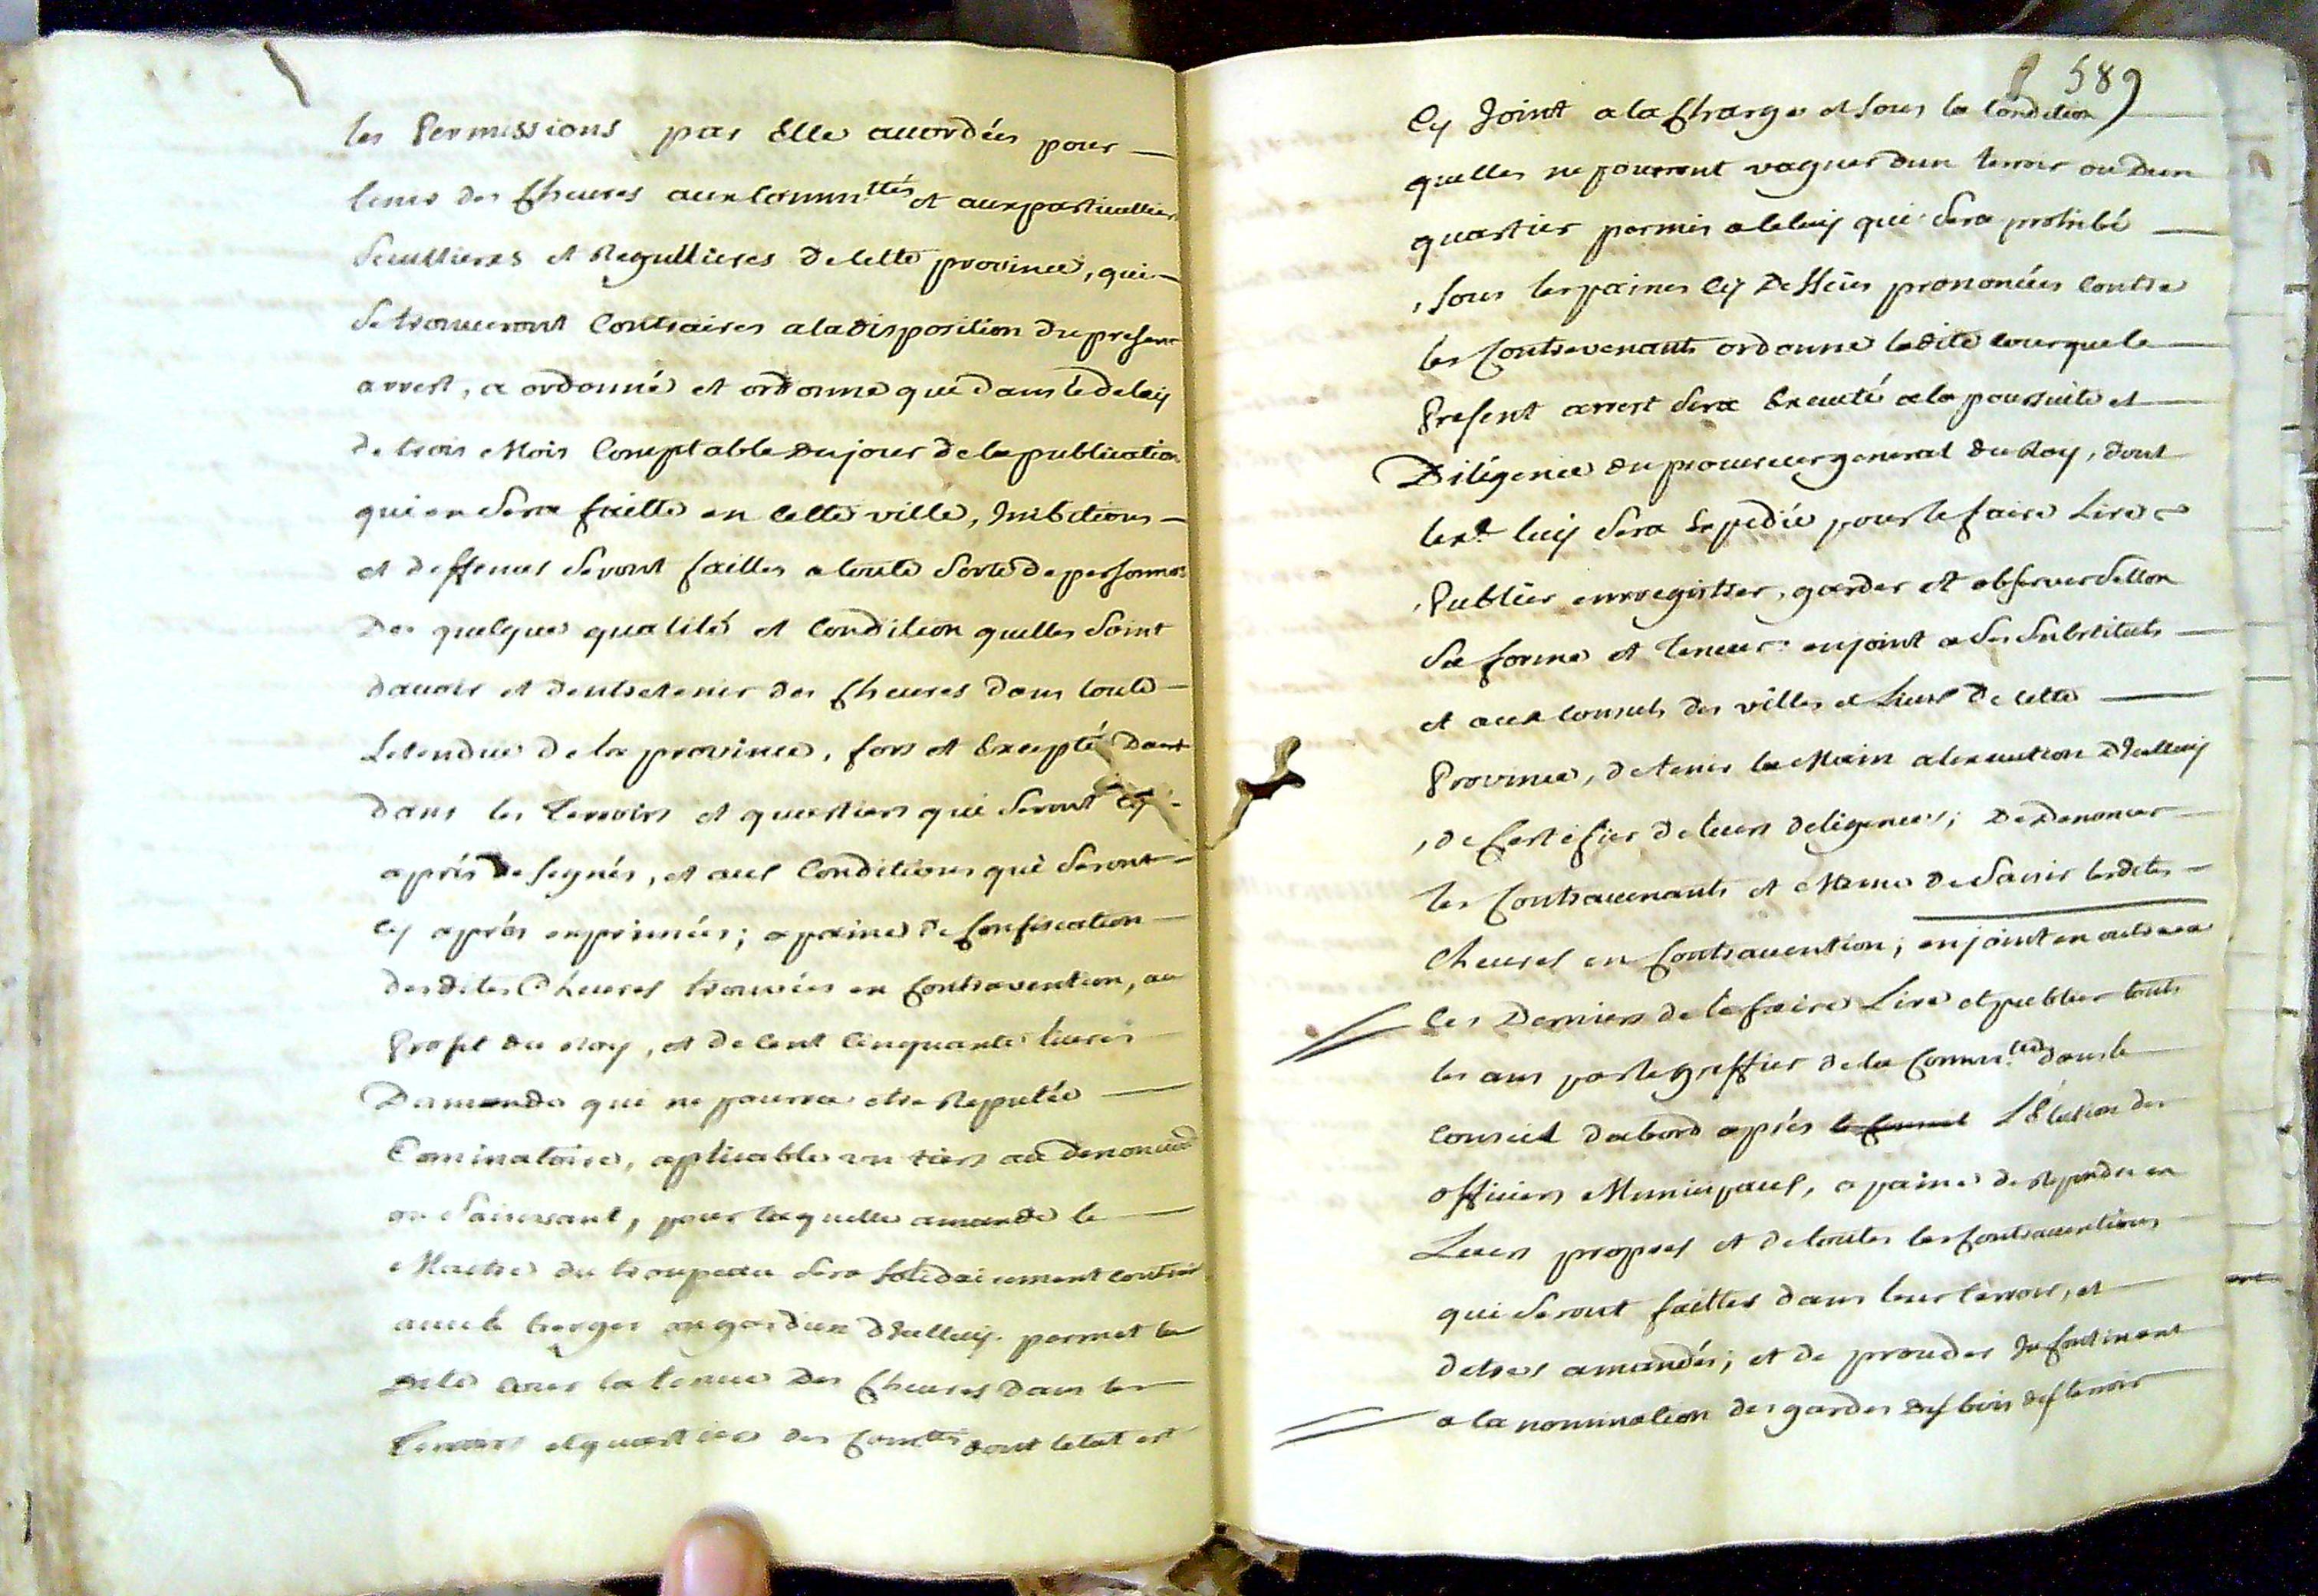 les Permissions par Elle accordées pour
tenir des Cheures aux Commu.ttés et aux particulliers
Secullieres et Regullieres de cette province, qui
se trouueront Contraires a la disposition du present
arrest, a ordonné et ordonne que dans le delay
de trois Mois Comptable du jour de la publication
qui en sera faitte en cette ville, Inibitions
et deffences seront faittes a toute sorte de personnes
de quelque qualité et Condition quelles soint
dauoir et dentretenir des Cheures dans toute
Letendue de la province, fors et Excepté dans
dans les terroirs et quartiers qui seront cy
aprés desegnés, et aux Conditions qui seront
cy aprés exprimées; a paine de Confiscation
desdites Cheures trouuées en Contravention, au
Profit du Roy, et de Cent Cinquante liures
Damande qui ne pourra etre Reputée
Cominatoire, aplicable un tiers au denonciat
ou saisissant, pour laquelle amande le
Maitre du troupeau sera solidairement contrint
auec le berger ou gardien dicelluy. permet la
dite Cour la tenue des Cheures dans les
terroirs et quartiers des Com.ttés dont letat est
589
Cy Joint a la Charge et sous la Condition
quelles ne pourront vaguer dun terroir ou dun
quartier permis a celuy qui sera prohibé
, sous les paines cy dessus prononcées contre
les Contrevenants ordonne ladite cour que le
Present arrest sera Executé a la poursuite et
Diligence du procureur general du Roy, dont
lext. luy sera Expedié pour le faire Lire
, Publier enregistrer, garder et observer sellon
sa forme et teneur. enjoint a ses substituts
et aux Consuls des villes et Lieux de cette
Province, de tenir la Main a lexecution dicelluy
, de Certifier de leurs deligences; de denoncer
les Contrauenants et Meme de saisir lesdites
Cheures en Contrauention; enjoint en outre a
Ces Derniers de le faire Lire et publier touts
les ans par le greffier de la Commu.té dans le
Conseil dabord aprés le Conseil L'Election des
officiers Municipaux, a paine de Repondre en
Leurs propres et de toutes les Contrauentions
qui seront faittes dans leur terroir, et
detres amandés; et de proceder Incontinent
a la nomination des gardes des bois des terroir